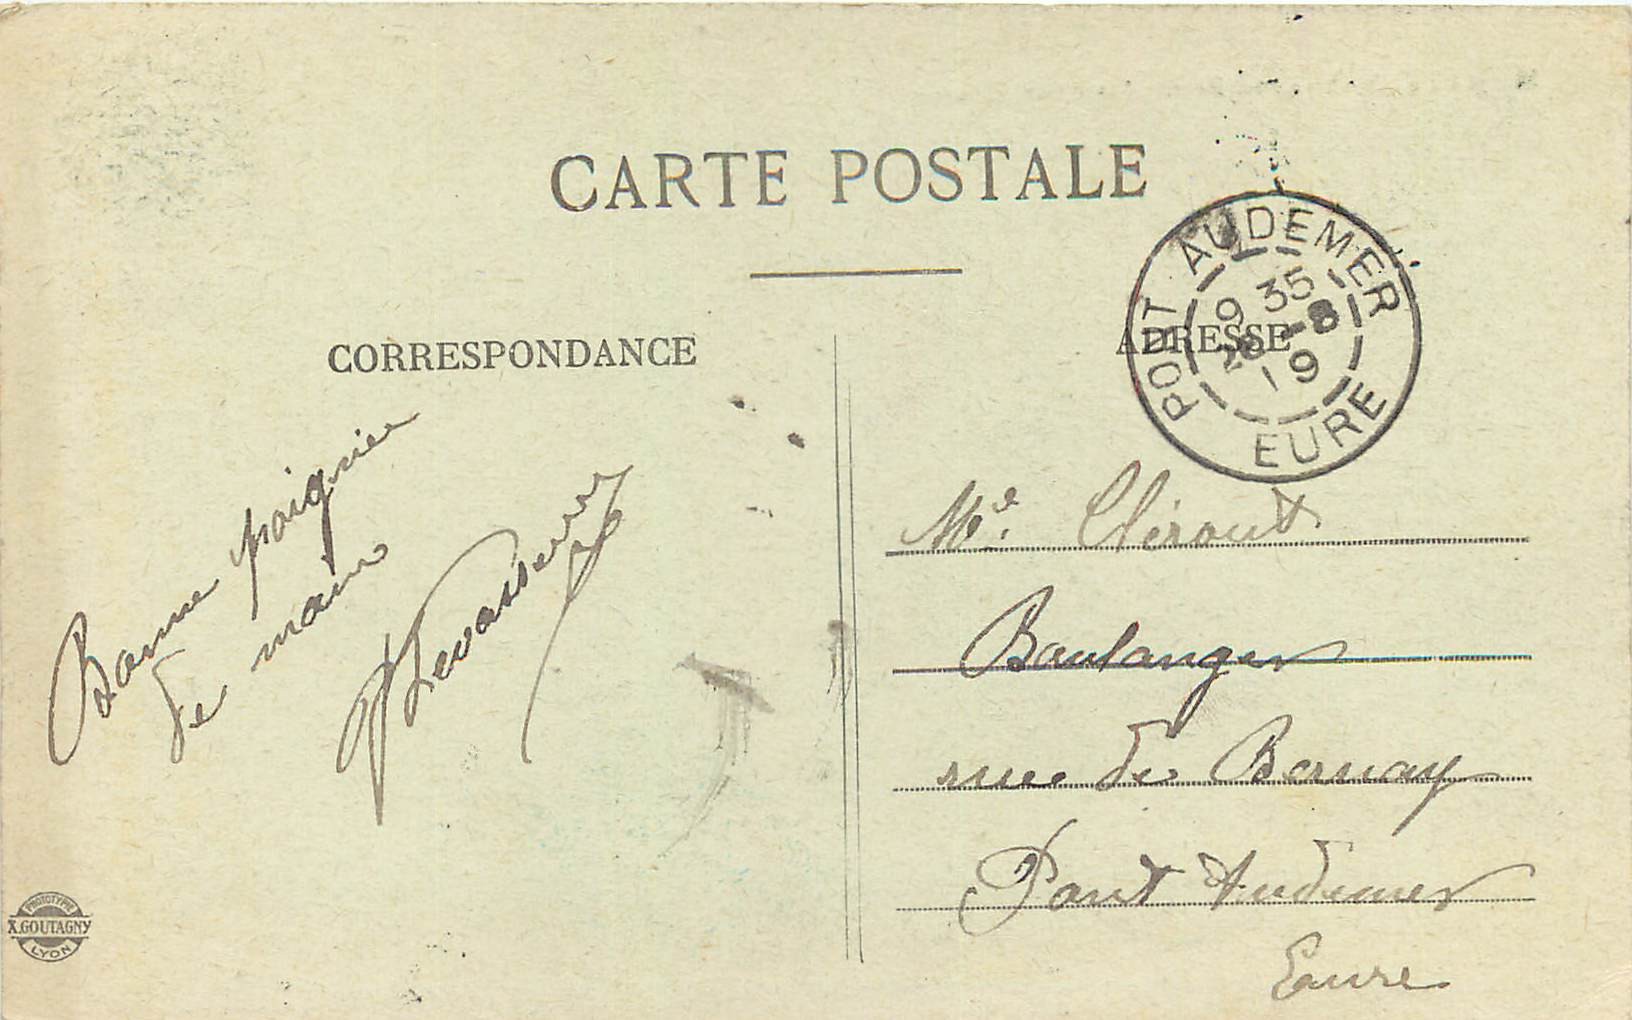 CARTE POSTALE
CORRESPONDANCE
ADRESSE
PONT AUDEMER
9 35
28 - 8
19
EURE
Bonne poignée
de main
Levasseur
Me. Cléront
Boulanger
rue de Bernay
Pont Audemer
Eure
PHOTOTYPIE
X.GOUTAGNY
LYON